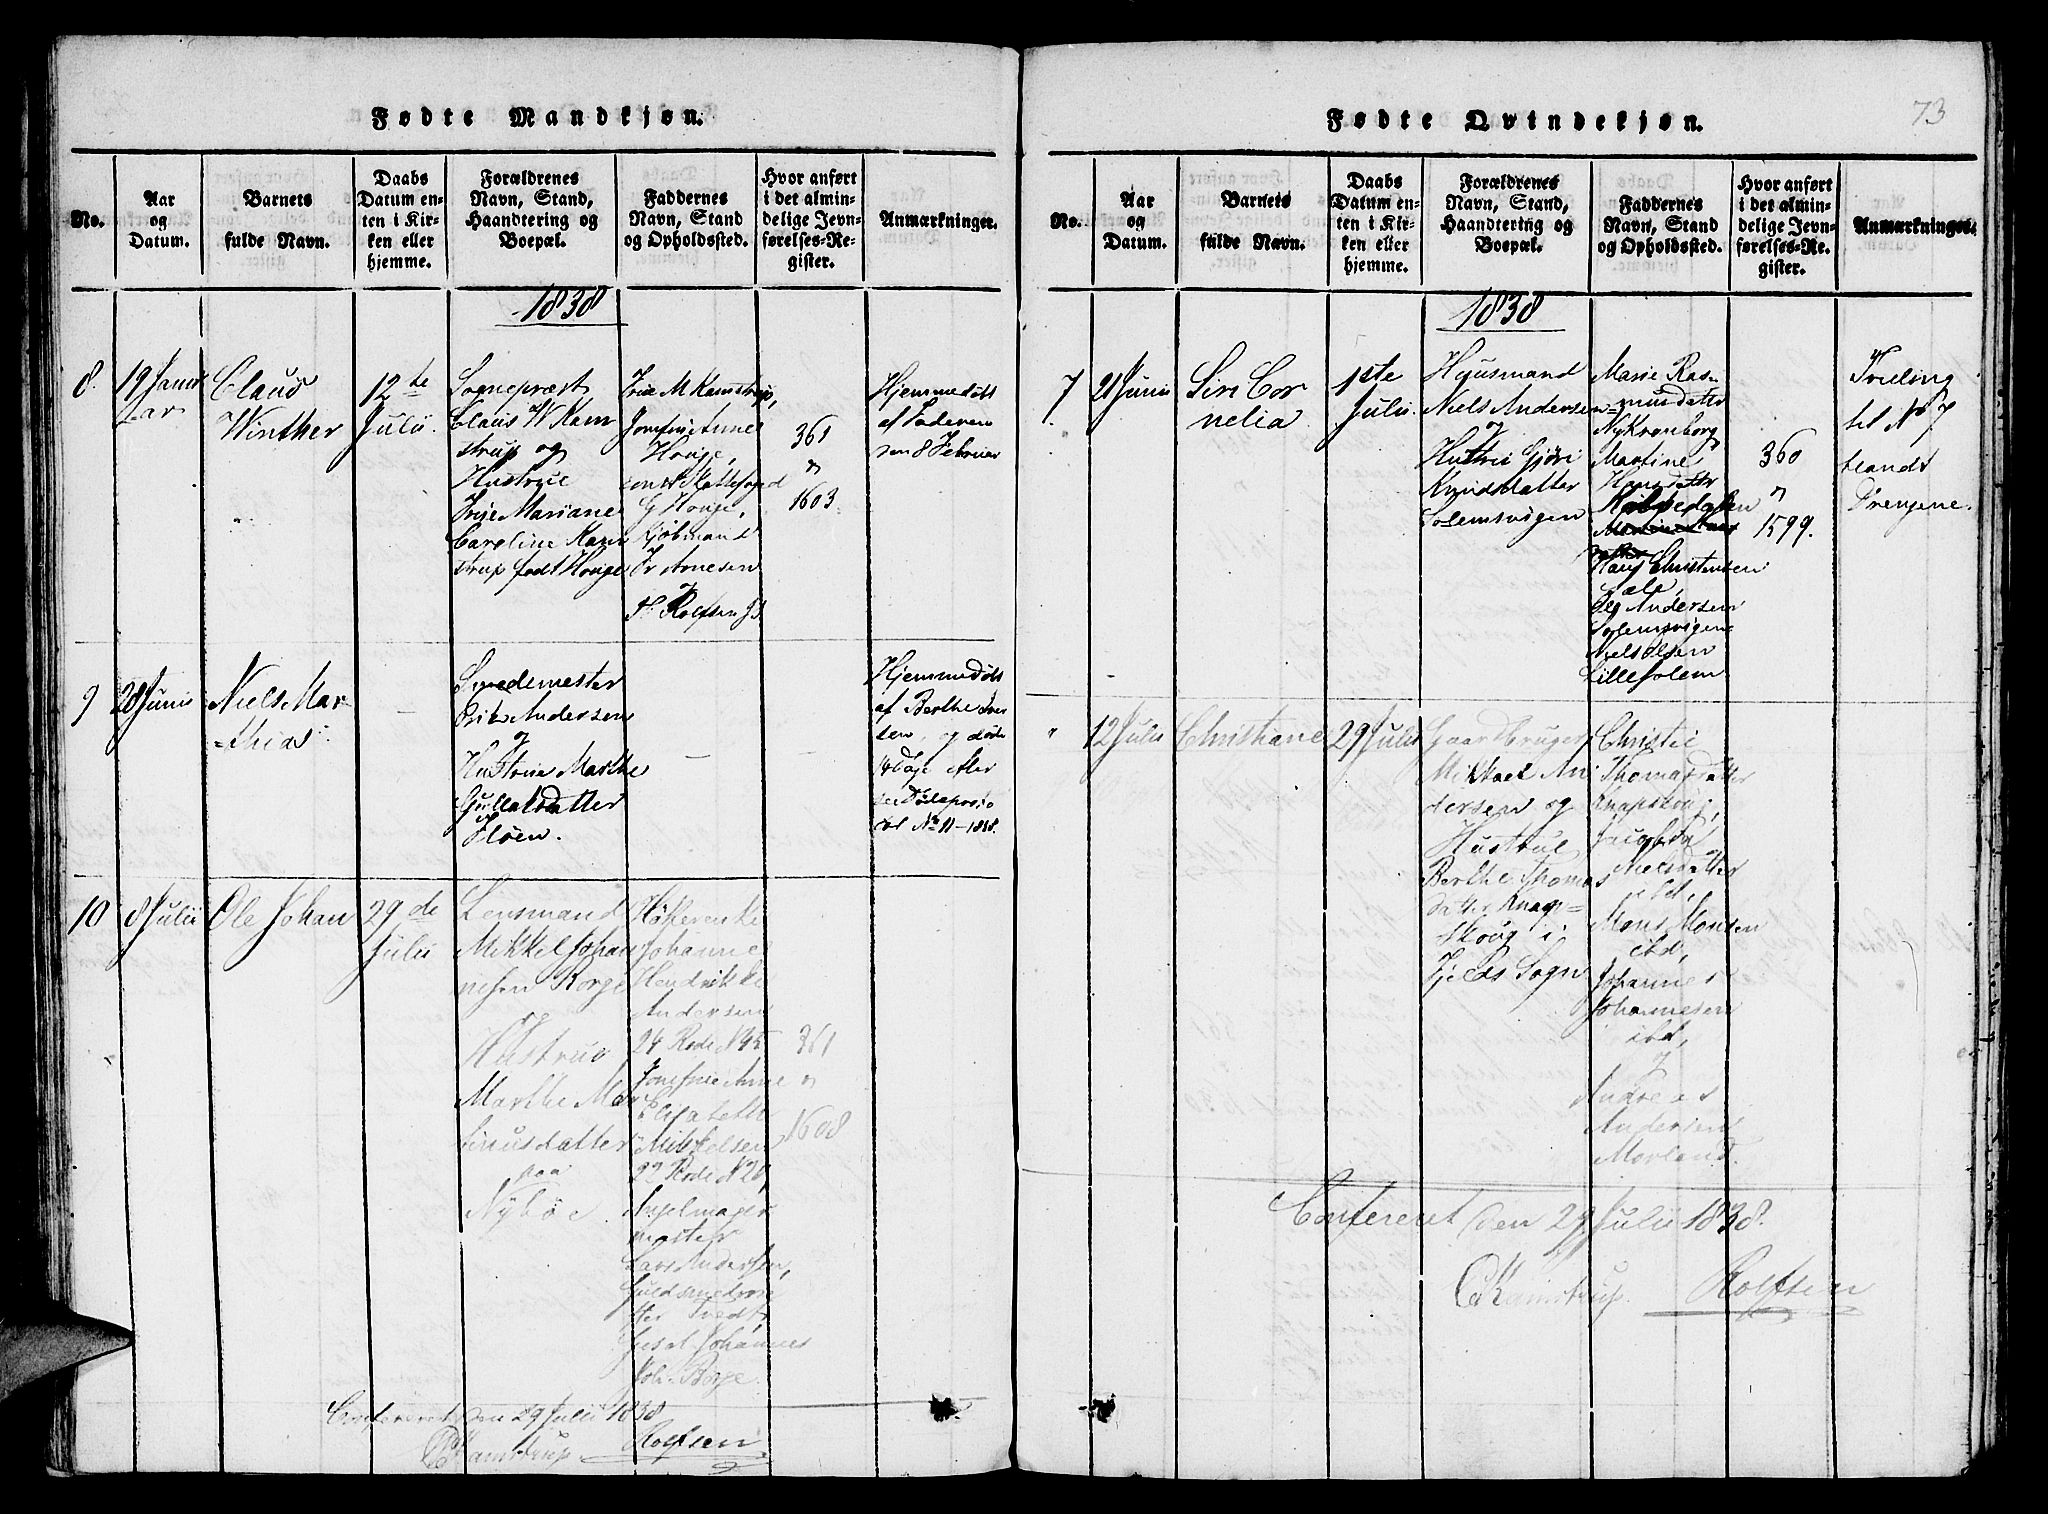 Fødte Mandkjøn.
No.
Aar
og
Datum.
Barnets
fulde Navn.
Daabs
Datum en-
ten i Kir-
ken eller
hjemme.
Forældrenes
Navn, Stand,
Haandtering og
Boepæl.
Faddernes
Navn, Stand
og Opholdssted.
Hvor anført
i det almin-
delige Jevn-
førelses-Re-
gister.
Anmærkninger.
1838
8.
19 Janu
ar
Claus
Winther
12te
Julii.
Sogneprest
Claus W Kam
strup og
Hustrue
Mariane
Caroline Kam
strup født Houge
M Kamstrup,
Anne
Houge,
G Houge,
Kjøbmand
Arnesen
og
Rolfsen
361
"
1603
Hjemmedøbt
af Faderen
den 8 Februar
9
28 Junii
Niels Mar
=thias
—
Erik Andersen
og
Hustrue Marthe
—
—
Hjemmedøbt
af Berthe Iver
sen, og døde
14 Dage efter
No 11-1838.
10
8 Julii
Ole Johan
29de
Julii
Lensmand
Mikkel Johan
nesen Borge
og
Hustrue
Marthe Mar
paa
Nybøe
Johanne
Hendrikke
Andersen
24 Rode N 45
Anne
Elisabeth
Mikkelsen
22 Rode N 20,
mester
Lars Andersen,
Johannes
Borge
361
"
1608
Confereret den 29 Julii 1838
CKamstrup Rolfsen
73
Fødte Qvindekjøn.
No.
Aar
og
Datum.
Barnets
fulde Navn.
Daabs
Datum en-
ten i Kir-
ken eller
hjemme.
Forældrenes
Navn, Stand,
Haandtering og
Boepæl.
Faddernes
Navn, Stand
og Opholdssted.
Hvor anført
i det almin-
delige Jevn-
førelses-Re-
gister.
Anmærkninger.
1838
7
21 Junii
Siri Cor
nelia
1ste
Julii.
Huusmand
Niels Andersen
og
Hustrue Gjøri
Knudsdatter
Solemsvigen
Marie Ras=
musdatter
Nykronborg
Martine
Hansdatter
Hans Christensen
Ole Andersen
Solemsvigen
Niels Olsen
Lille Solem
360
"
1599.
Tvilling
til N 7
blandt
Drengene.
"
12 Julii
Christiane
29 Julii
Gaardbruger
Mikkael An
dersen og
Hustrue
Berthe Thomas
datter Knap=
skoug i
Fjelds Sogn
Christie
Thomasdatter
Knapskoug,
Jacobea
Nielsdatter
ibd,
Mons Monsen
ibd,
Johannes
Johannesen
ibd,
og
Andreas
Andersen
Morland.
Confereret den 29 Julii 1838.
CKamstrup. Rolfsen